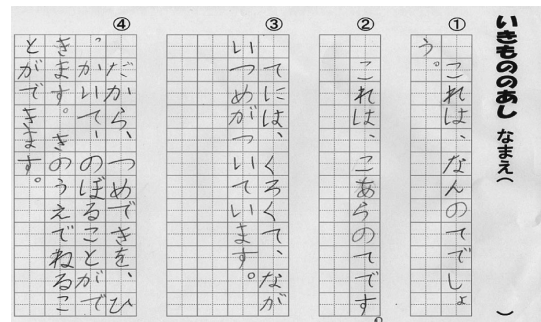 いきもののあし なまえ( )
①
これは、なんのてでしょ
う。
②
これは、こあらのてです。
③
てには、くろくて、なが
いつめがついています。
④
だから、つめできを、ひ
っかいて、のぼることがで
きます。きのうえでねるこ
とができます。